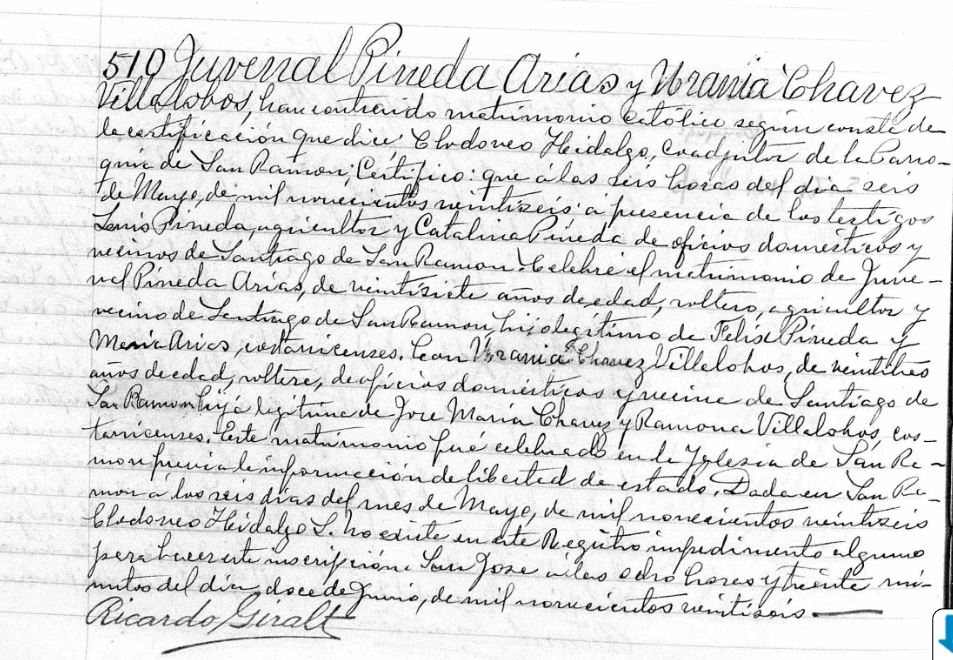 510 Juvenal Pineda Arias y Urania Chavez
Villalobos, han contraido matrimonio católico según consta de
la certificación que dice: Clodoveo Hidalgo, Coadjutor de la Parro-
quia de San Ramon, Certifico: que á las seis horas del dia seis
de Mayo, de mil novecientos veintiseis a presencia de los testigos
Luis Pineda, agricultor y Catalina Pineda de oficios domésticos y
vecinos de Santiago de San Ramon. Celebré el matrimonio de Juve-
nal Pineda Arias, de veintisiete años de edad, soltero, agricultor y
vecino de Santiago de San Ramon, hijo legítimo de Felix Pineda y
Maria Arias, costarricenses. Con Urania Chavez Villalobos, de veintitres
años de edad, soltera, de oficios domésticos y vecina de Santiago de
San Ramon hija legitima de Jose Maria Chavez y Ramona Villalobos, cos-
tarricenses. Este matrimonio fué celebrado en la Yglesia de San Ra-
mon previa la información de libertad de estado. Dada en San Ra-
mon á los seis dias del mes de Mayo, de mil novecientos veintiseis
Clodoveo Hidalgo S. No existe en este Registro impedimento alguno
para hacer esta inscripción. San José a las ocho horas y treinta mi-
nutos del dia doce de Junio, de mil novecientos veintiseis.
Ricardo Giralt